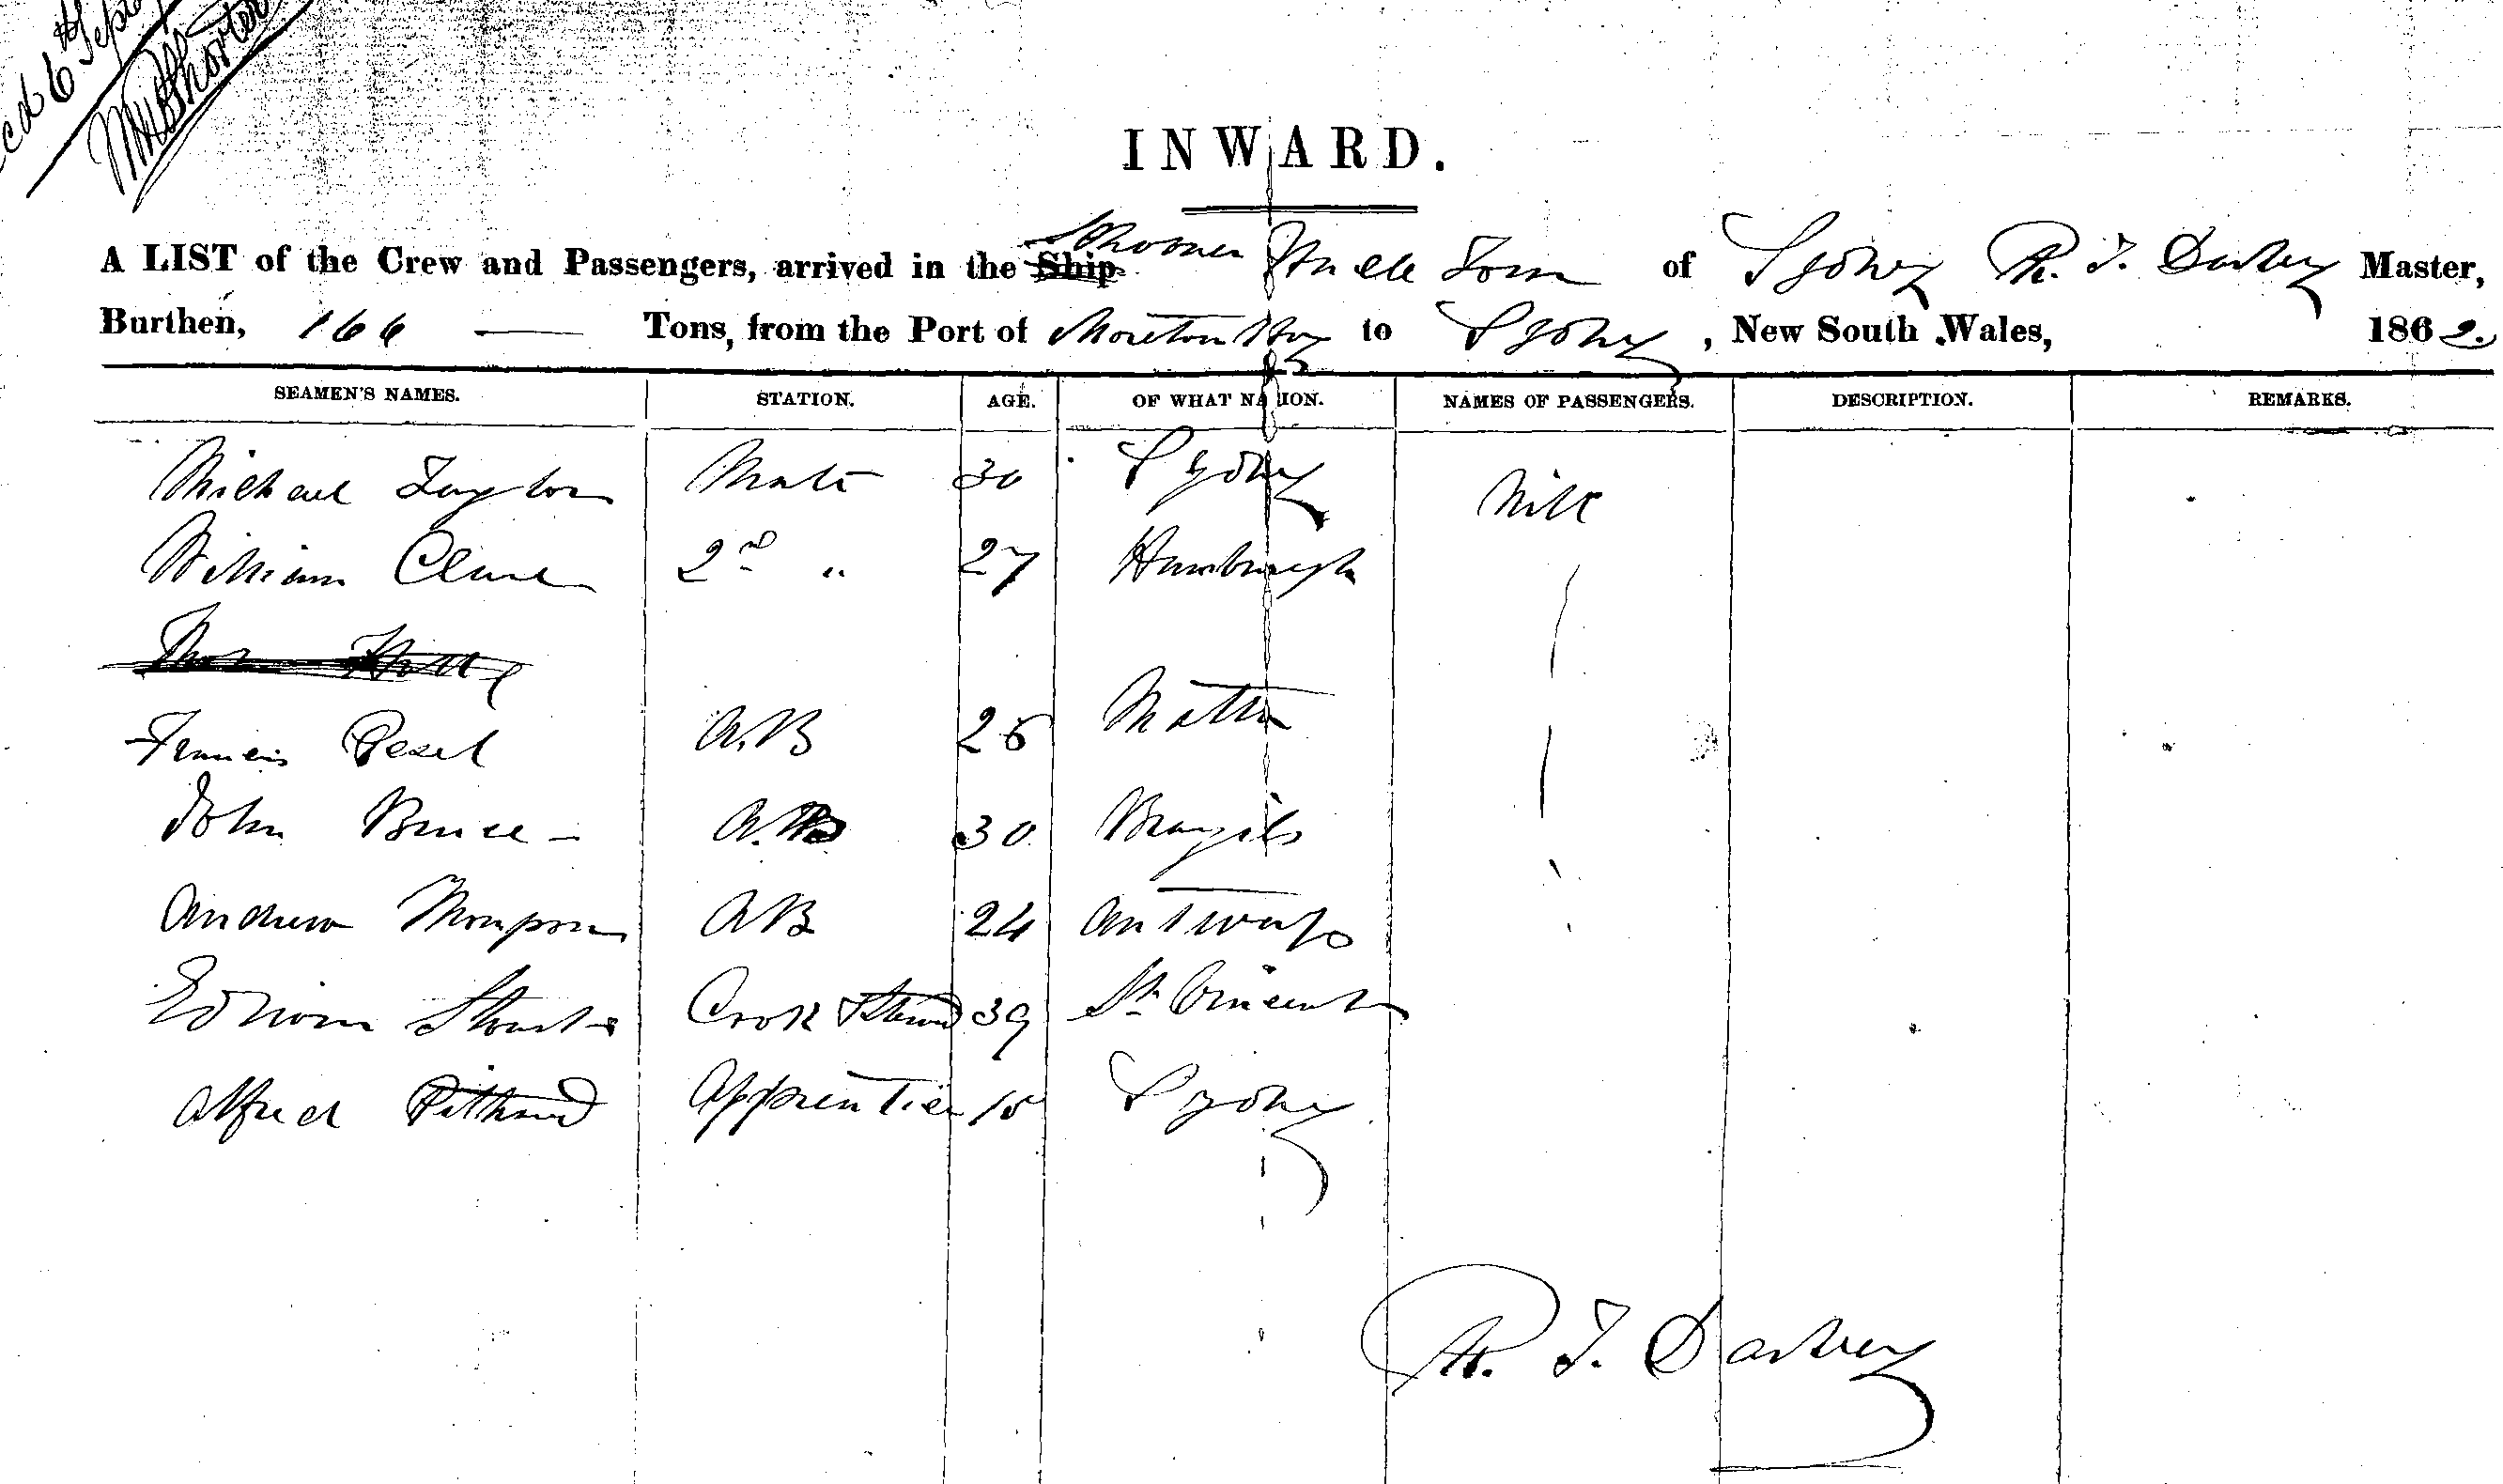 6th Sept
INWARD.
A LIST of the Crew and Passengers, arrived in the Ship Schooner Uncle Tom of Sydney R. T. Darbey Master,
Burthen, 166 — Tons, from the Port of Moreton Bay to Sydney, New South Wales, 1862.
SEAMEN'S NAMES. STATION. AGE. OF WHAT NATION. NAMES OF PASSENGERS. DESCRIPTION. REMARKS.
Michael Taylor Mate 30 Sydney Nill
William 2nd " 27 Hamburgh
Francis A.B 26 Malta
John Bruce - A.B 30 Brazils
Andrew Thompson AB 24 Antwerp
Edwin Cook & Steward 39 St Vincents
Alfred Apprentice 15 Sydney
R. T. Darbey